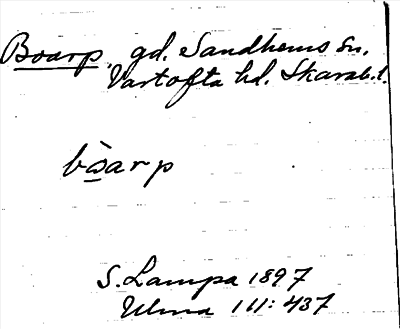 Boarp, gd. Sandhems sn.
Vartofta hd. Skarab. l.
bò̲arp
S. Lampa 1897
Ulma 111: 437